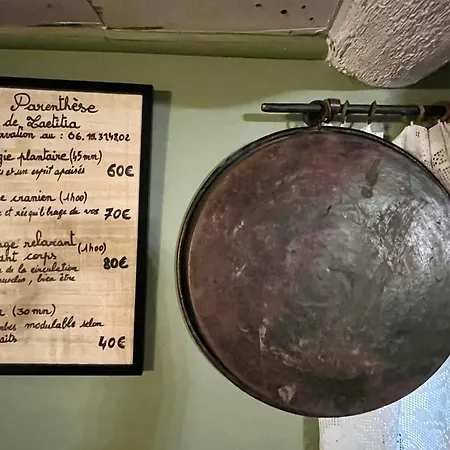 Parenthèse
de Laetitia
vation au : 06.
gie plantaire (45 mn)
un esprit apaisés
60€
e cranien (1h00)
e et rééquilibrage de vos
70€
age relaxant
ant corps (1h00)
de la circulation
muscles, bien être
80€
(30 mn)
mbes modulable selon
aits
40€